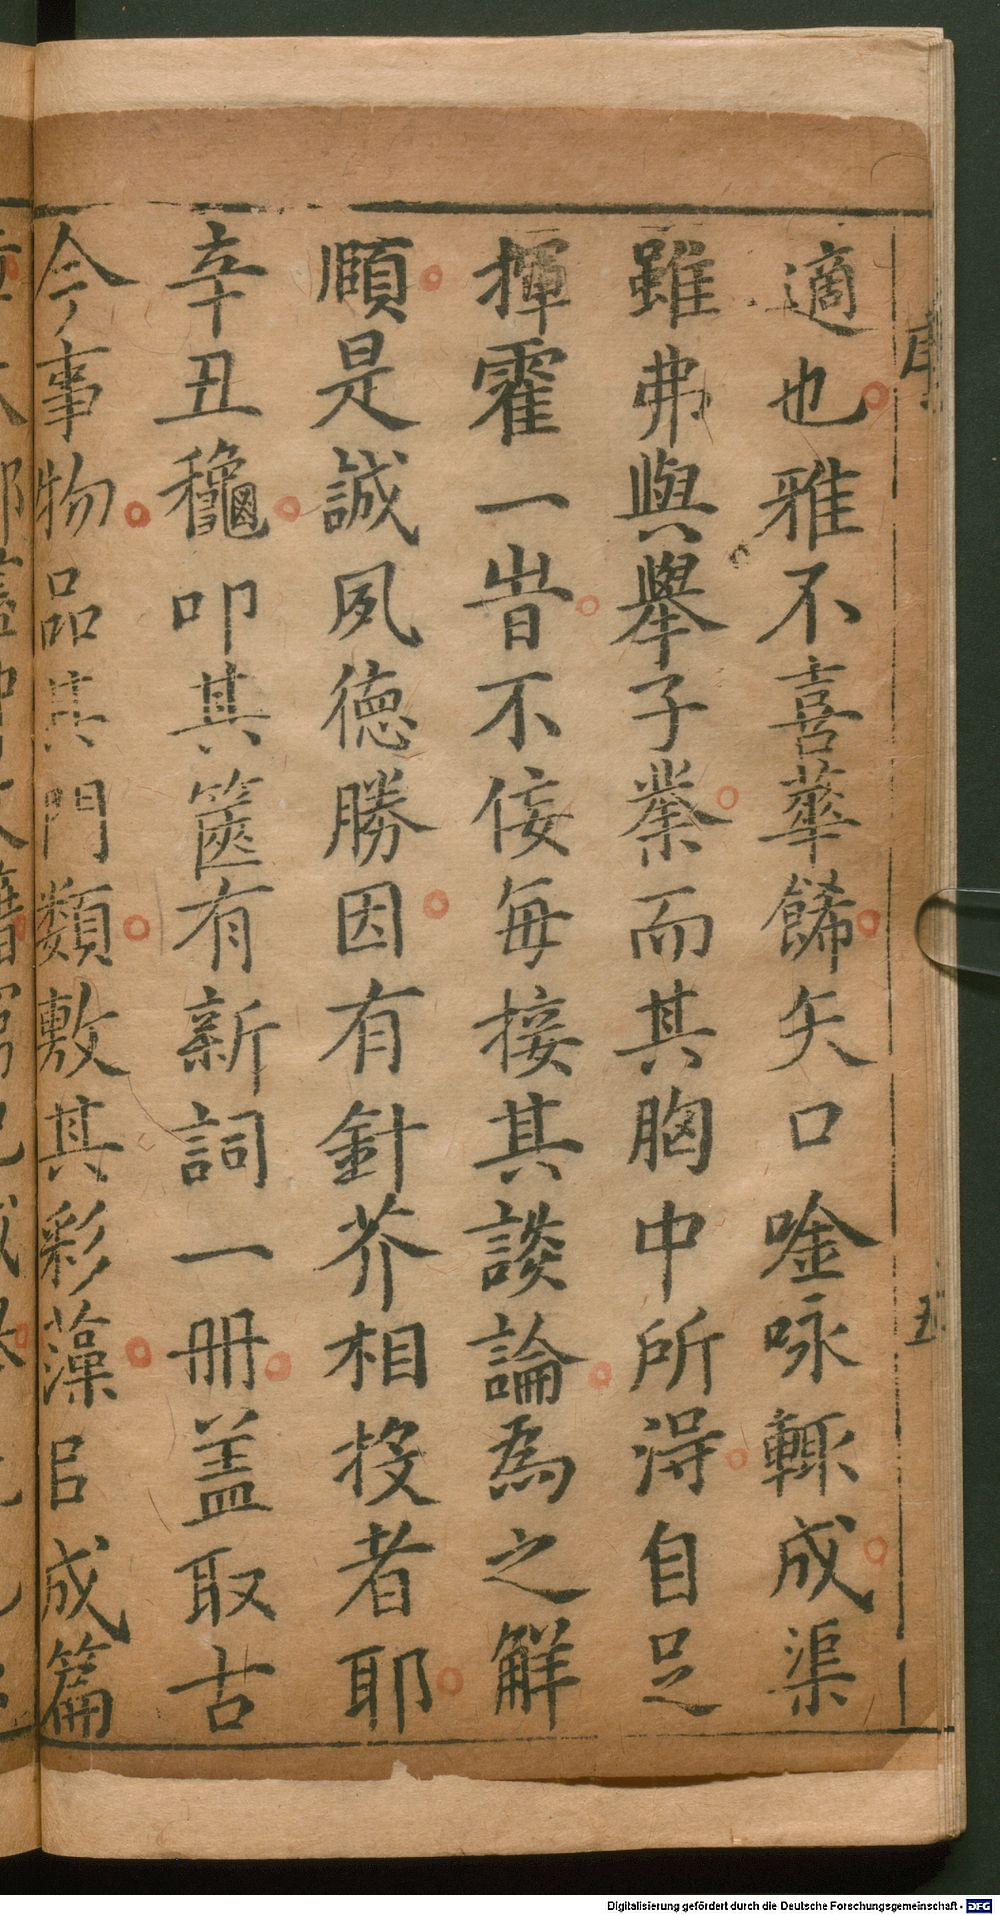 適也雅不喜華餙矢口唫咏輒成渠
雖弗與舉子業而其胸中所淂自足
揮霍一旹不佞每接其談論為之觧
頥是誠夙德勝因有針芥相投者耶
辛丑穐叩其篋有新詞一冊盖取古
今事物品其門類敷其彩藻㠯成篇
五
Digitalisierung gefördert durch die Deutsche Forschungsgemeinschaft - DFG